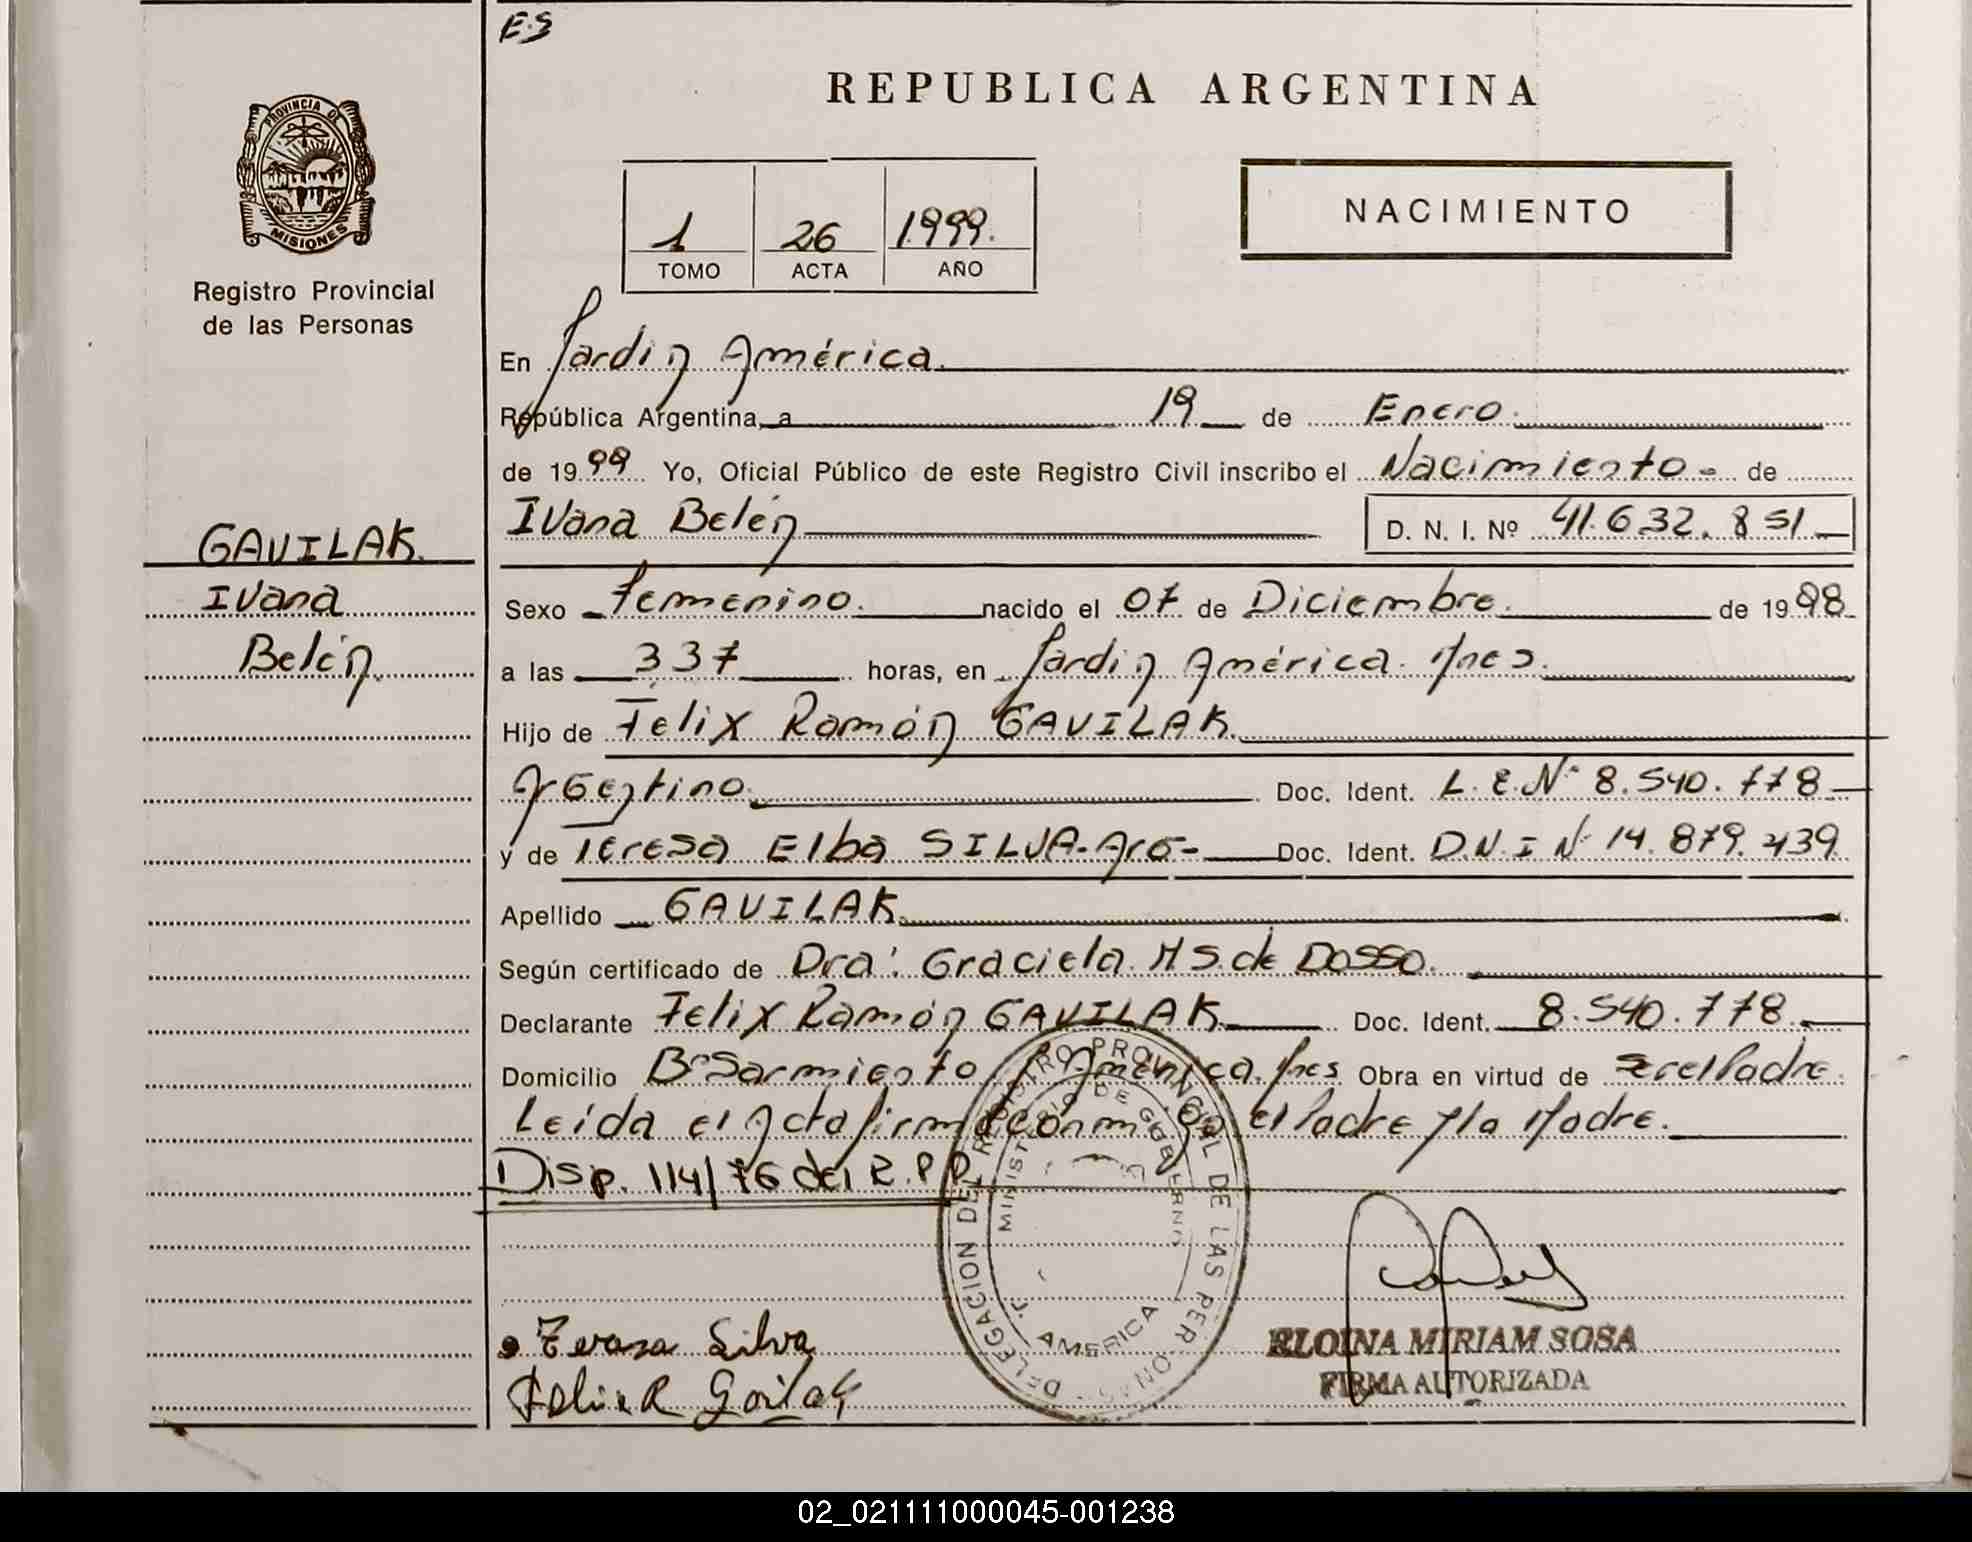 E.S
REPUBLICA ARGENTINA
PROVINCIA DE
MISIONES
1 26 1.999.
TOMO ACTA AÑO
NACIMIENTO
Registro Provincial
de las Personas
En Jardin América.
República Argentina, a 19 de Enero.
de 19 99 Yo, Oficial Público de este Registro Civil inscribo el Nacimiento - de
Ivana Belén D. N. I. Nº 41.632.851
GAVILAK.
Ivana
Belén.
Sexo Femenino. nacido el 07 de Diciembre. de 19 98
a las 3 37 horas, en Jardin América. Mnes.
Hijo de Felix Ramón GAVILAK.
Argentino. Doc. Ident. L.E.Nº 8.540.778
y de Teresa Elba SILVA - Arg - Doc. Ident. D.N.I Nº 14.879.439
Apellido GAVILAK.
Según certificado de Dra: Graciela M S. de Dosso.
Declarante Felix Ramón GAVILAK Doc. Ident. 8.540.778.
Domicilio Bº Sarmiento J. América. Mnes Obra en virtud de ser el Padre.
Leída el Acta firma conmigo el Padre y la Madre.
Disp. 114/76 del R.P.P.
DELEGACION DEL REGISTRO PROVINCIAL DE LAS PERSONAS
MINISTERIO DE GOBIERNO
J. AMERICA
Teresa Silva
Felix R Gavilak
ELOINA MIRIAM SOSA
FIRMA AUTORIZADA
02_021111000045-001238